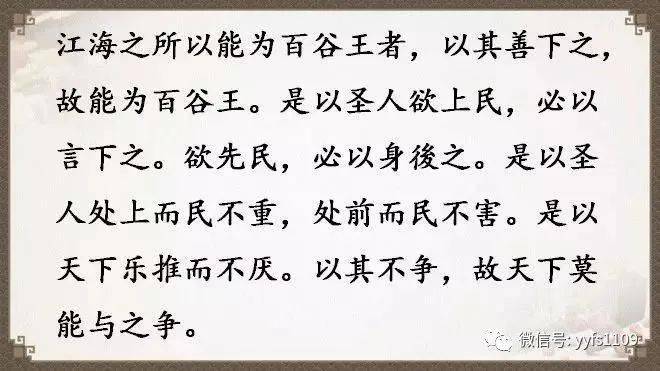 江海之所以能为百谷王者，以其善下之，
故能为百谷王。是以圣人欲上民，必以
言下之。欲先民，必以身後之。是以圣
人处上而民不重，处前而民不害。是以
天下乐推而不厌。以其不争，故天下莫
能与之争。
微信号: yyfs1109